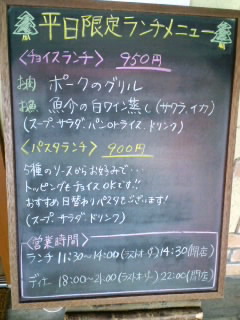 平日限定ランチメニュー
<チョイスランチ> 950円
お肉 ポークのグリル
お魚 魚介の白ワイン蒸し (サクラ、イカ)
(スープ、サラダ、パンorライス、ドリンク)
<パスタランチ> 900円
5種のソースからお好みで・・・
トッピングもチョイスOKです!!
おすすめ日替わりパスタもございます!
(スープ、サラダ、ドリンク)
<営業時間>
ランチ 11:30~14:00(ラストオーダー) 14:30(閉店)
ディナー 18:00~21:00(ラストオーダー) 22:00(閉店)